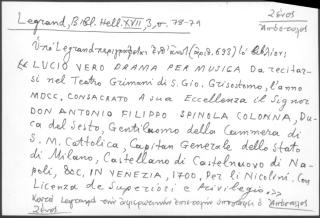 Legrand, Bibl. Hell. XVII, 3, σ. 78-79
2ένος
Ἀμβρόσιος
Ὑπὸ Legrand περιγράφεται (ἀριθ. 693) τὸ βιβλίον:
« LUCIO VERO DRAMA PER MUSICA Da recitar-
si nel Teatro Grimani di S. Gio. Grisostomo, l'anno
MDCC, CONSACRATO A sua Eccellenza il Signor
DON ANTONIO FILIPPO SPINOLA COLONNA, Du-
ca del Sesto, Gentiluomo della Cammera di
S. M. Cattolica, Capitan Generale dello Stato
di Milano, Castellano di Castelnuovo di Na-
poli, &c, IN VENEZIA, 1700, Per li Nicolini. Con
Licenza de Superiori e Privilegio. »
Κατὰ Legrand τὴν ἀφιέρωσιν ὑπογράφει ὁ Ἀμβρόσιος
2ένος